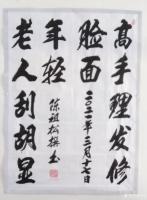 高手理发修
脸面
二〇二一年三月十七日
老人刮胡显
年轻
陈祖松撰书